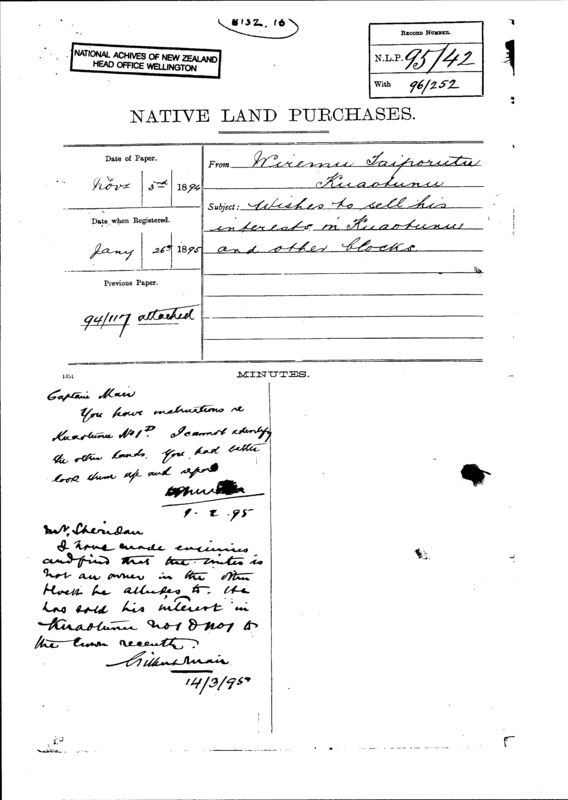 8132.16
NATIONAL ACHIVES OF NEW ZEALAND
HEAD OFFICE WELLINGTON
RECORD NUMBER.
N.L.P. 95/42
With 96/252
NATIVE LAND PURCHASES.
Date of Paper.
Novr 3rd 1894
Date when Registered.
Jany 26th 1895
Previous Paper.
94/117 attached
From Wiremu Taiporutu
Kuaotunu
Subject: Wishes to sell his
interests in Kuaotunu
and other blocks
1351
MINUTES.
Captain Mair
You have instructions re
Kuaotunu No 1D. I cannot identify
the other lands. You had better
look them up and report
9-2-95
Mr, Sheridan
I have made enquiries
and find that the writer is
not an owner in the other
block he alludes to. He
has sold his interest in
Kuaotunu to
the Crown recently.
Gilbert Mair
14/3/95